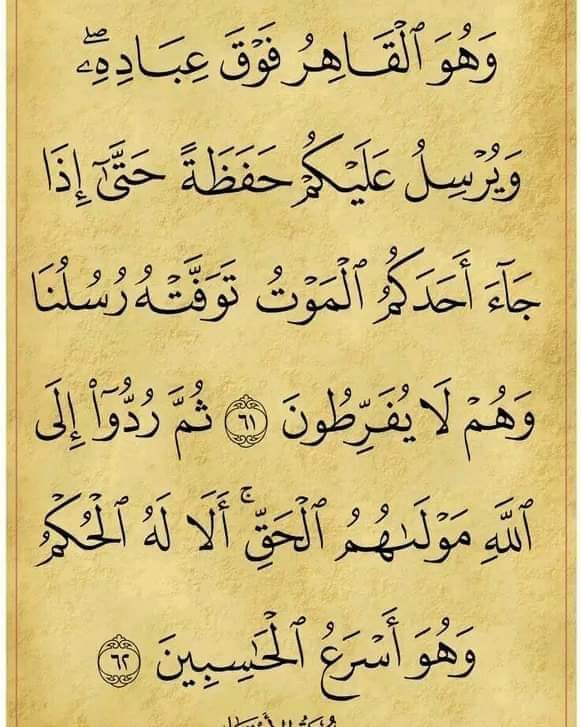 وَهُوَ ٱلْقَاهِرُ فَوْقَ عِبَادِهِۦۖ
وَيُرْسِلُ عَلَيْكُمْ حَفَظَةً حَتَّىٰٓ إِذَا
جَآءَ أَحَدَكُمُ ٱلْمَوْتُ تَوَفَّتْهُ رُسُلُنَا
وَهُمْ لَا يُفَرِّطُونَ ٦١ ثُمَّ رُدُّوٓا۟ إِلَى
ٱللَّهِ مَوْلَىٰهُمُ ٱلْحَقِّ ۚ أَلَا لَهُ ٱلْحُكْمُ
وَهُوَ أَسْرَعُ ٱلْحَٰسِبِينَ ٦٢